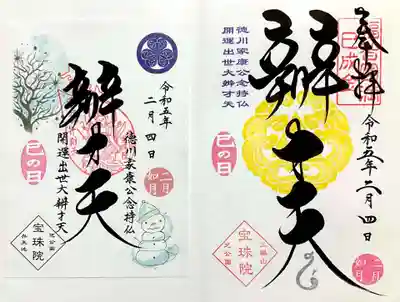 奉拝
辨才天
徳川家康公念持仏
開運出世大辨才天
令和五年二月四日
巳の日
二月
如月
三縁山
宝珠院
芝公園
辨才天
令和五年
二月四日
徳川家康公念持仏
開運出世大辨才天
巳の日
二月
如月
宝珠院
芝公園